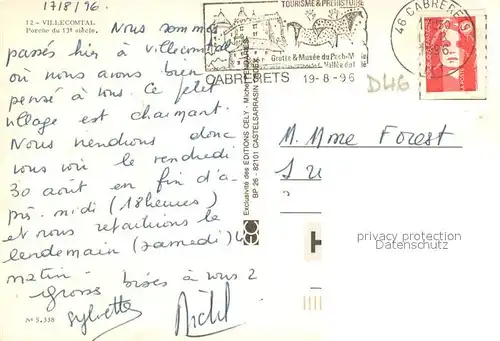 17/8/96
12 - VILLECOMTAL
Porche du 13e siècle.
Nous sommes
passés hier à Villecomtal
où nous avons bien
pensé à vous. Ce petit
village est charmant.
Nous viendrons donc
vous voir le vendredi
30 août en fin d'a-
près-midi (18 heures)
et nous repartirons le
lendemain (samedi)
matin.
Grosses bises à vous 2
Sylvette Michel
N° S.338
Exclusivité des EDITIONS CELY - Michel
BP 26 - 82101 CASTELSARRASIN
TOURISME & PREHISTOIRE
Grotte & Musée du Pech-M
CABRERETS 19-8-96
46 CABRERETS
96
D46
M. Mme Forest
H
privacy protection
Datenschutz